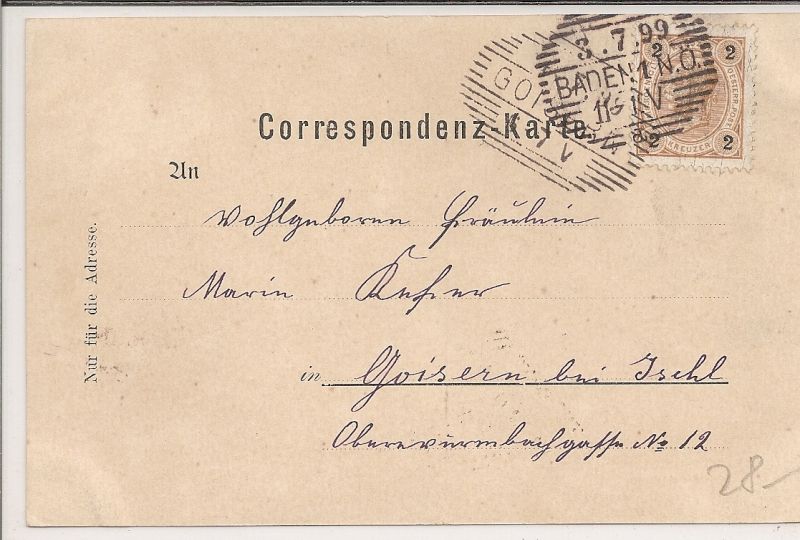 3.7.99
BADEN 1 N.Ö.
GOI
2 2
2 2
KREUZER
Correspondenz-Karte
An
Wohlgeboren Fräulein
Marie
in Goisern bei Ischl
Nº 12
Nur für die Adresse.
28.-